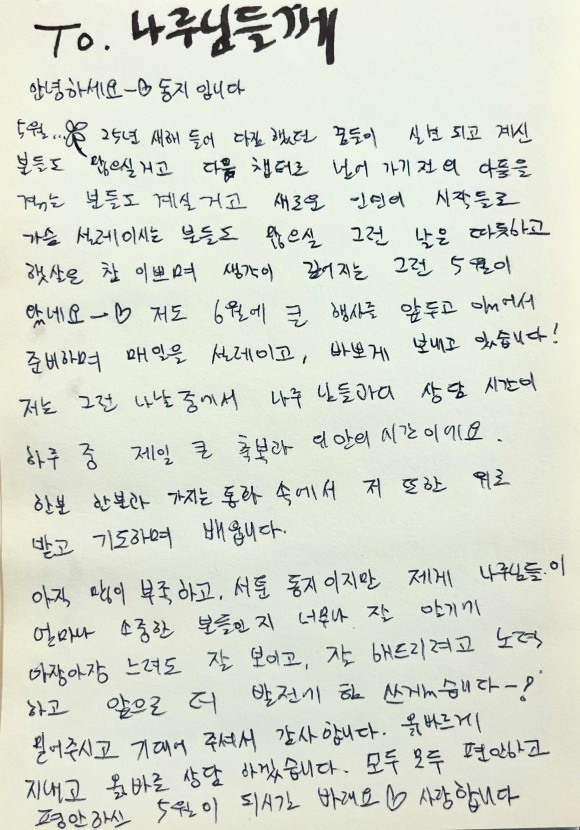 To. 나루님들께
안녕하세요~♡ 동지 입니다
5월... 25년 새해 들어 다짐 했던 꿈들이 실현 되고 계신
분들도 많으실거고 다음 챕터로 넘어 가기 전의 아픔을
겪는 분들도 계실 거고 새로운 인연이 시작들로
가슴 설레이시는 분들도 많으실 그런 날은 따듯하고
햇살은 참 이쁘며 생각이 깊어지는 그런 5월이
왔네요~♡ 저도 6월에 큰 행사를 앞두고 있어서
준비하며 매일을 설레이고, 바쁘게 보내고 있습니다!
저는 그런 나날 중에서 나루 님들과의 상담 시간이
하루 중 제일 큰 축복과 위안의 시간이에요.
한분 한분과 가지는 통화 속에서 저 또한 위로
받고 기도하며 배웁니다.
아직 많이 부족하고, 서툰 동지이지만 제게 나루님들이
얼마나 소중한 분들인지 너무나 잘 알기에
아장아장 느려도 잘 보이고, 잘 해드리려고 노력
하고 앞으로 더 발전기 힘 쓰겠습니다~!
믿어주시고 기대어 주셔서 감사합니다. 옳바르게
지내고 옳바로 상담 하겠습니다. 모두 모두 편안하고
평안하신 5월이 되시길 바래요♡ 사랑합니다